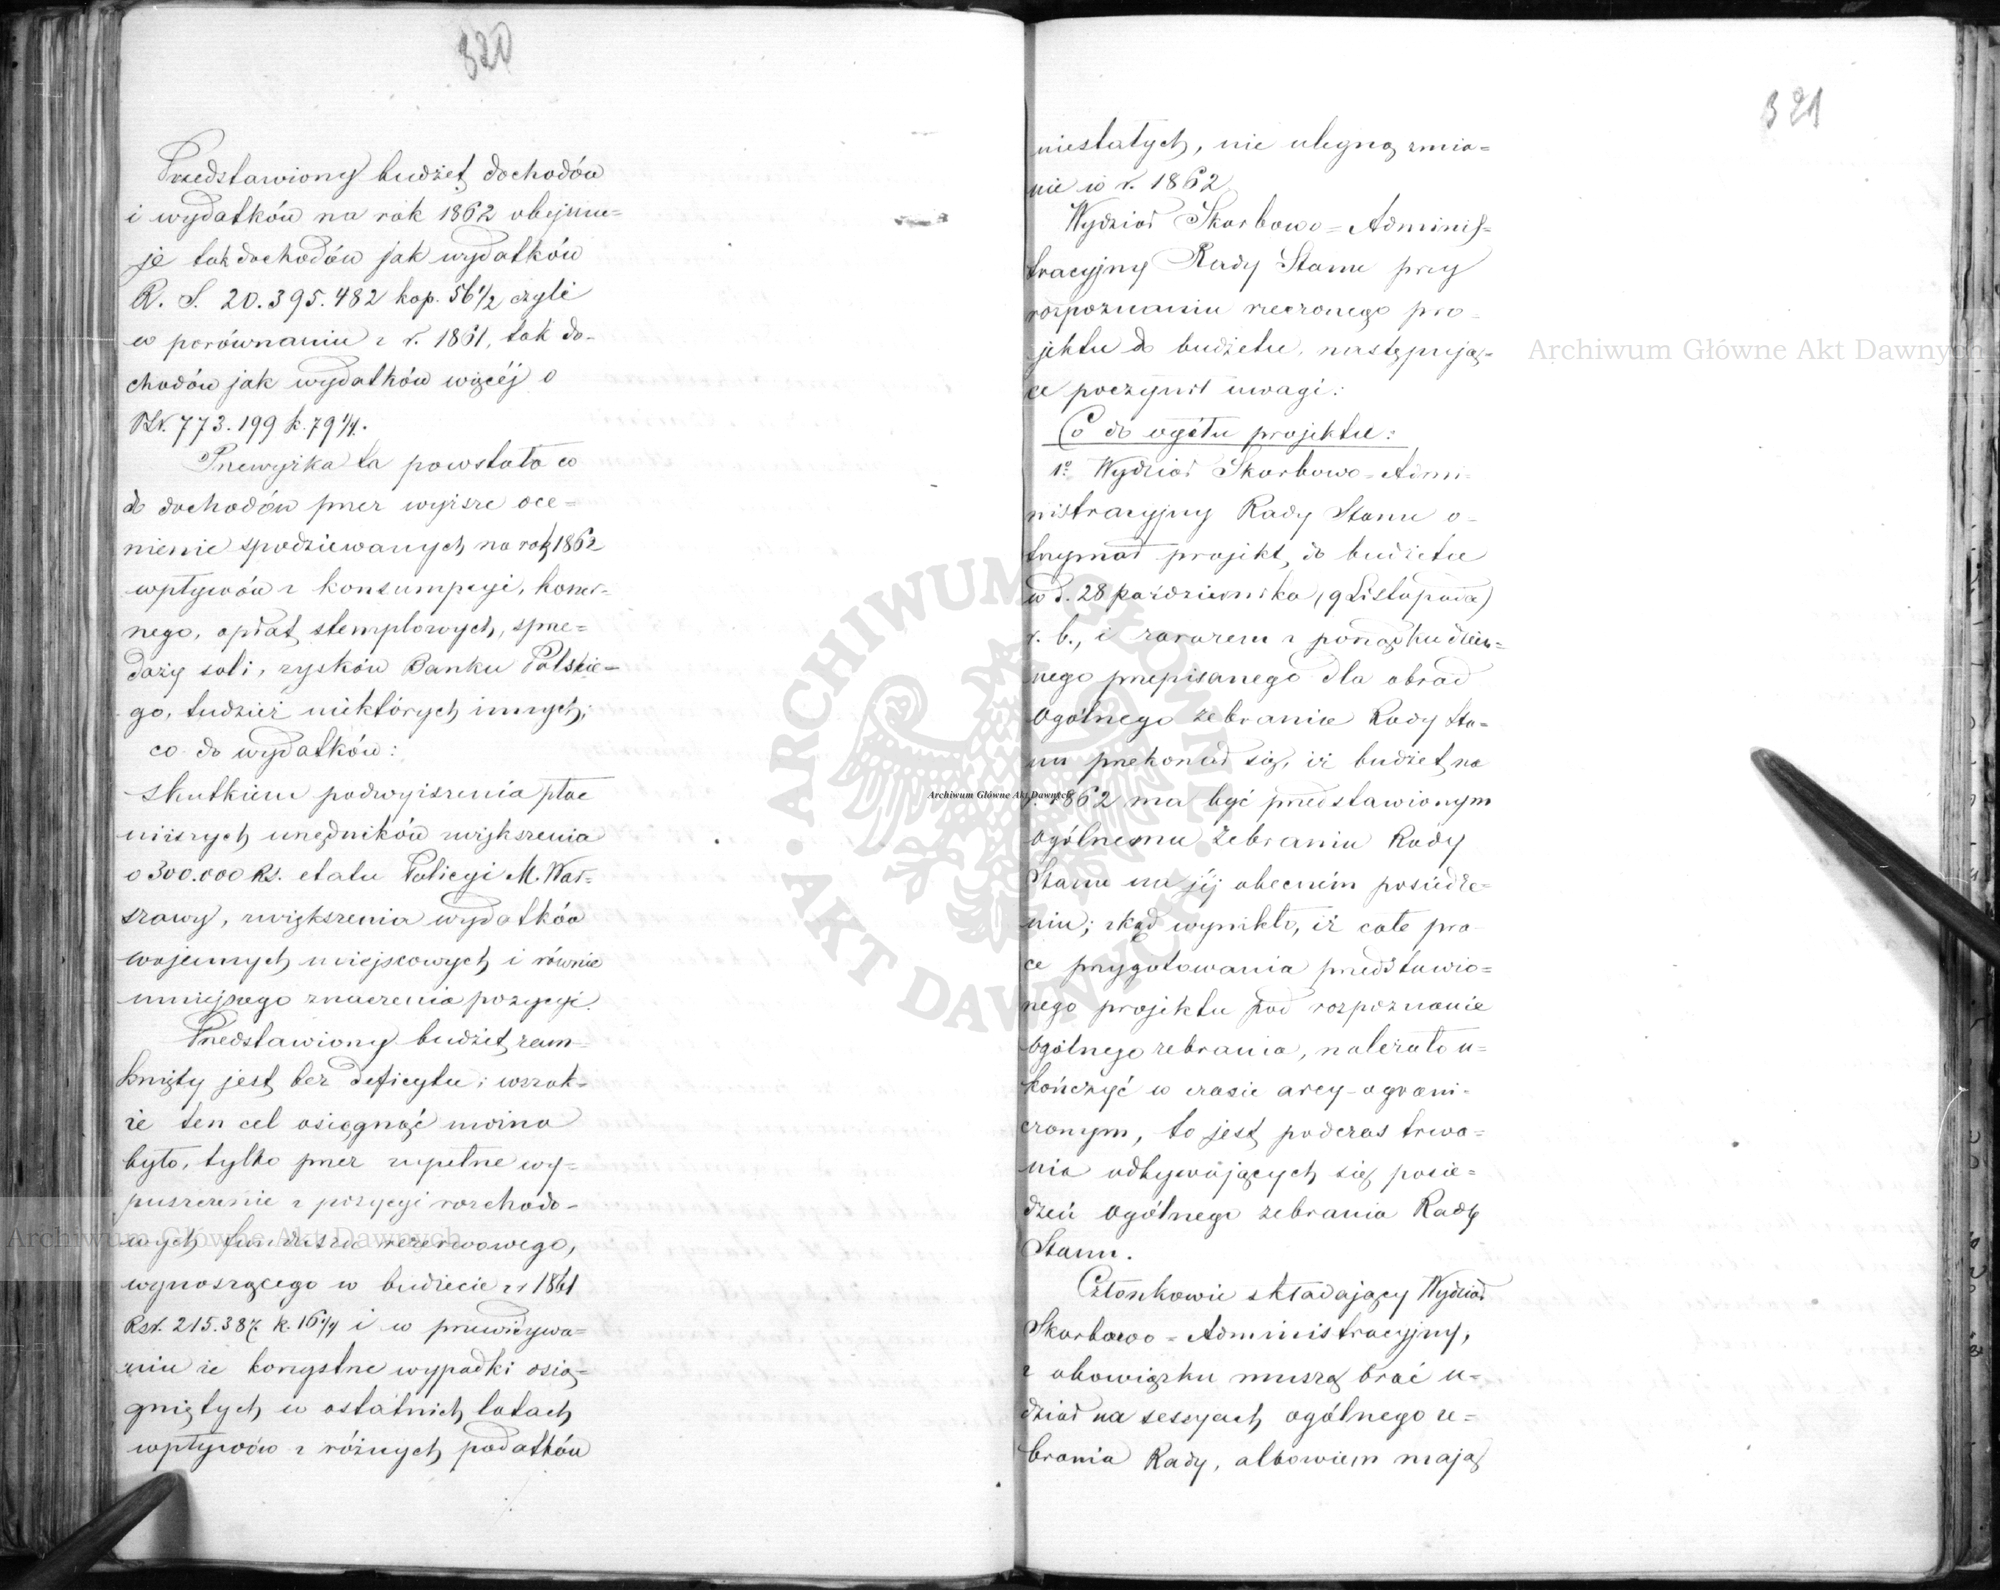 320
Przedstawiony budżet dochodów
i wydatków na rok 1862 obejmu=
je tak dochodów jak wydatków
R. S. 20.395.482 kop. 56 1/2 czyli
w porównaniu z r. 1861, tak do-
chodów jak wydatków więcéj o
RSr. 773.199 k. 79 1/4.
Przewyżka ta powstała co
do dochodów przez wyższe oce=
nienie spodziewanych na rok 1862
wpływów z konsumpcyi, koszer-
nego, opłat stemplowych, sprze=
daży soli, zysków Banku Polskie=
go, tudzież niektórych innych;
co do wydatków:
skutkiem podwyższenia płac
niższych urzędników zwiększenia
o 300.000 Rs. etatu Policyi M. War=
szawy, zwiększenia wydatków
wojennych miejscowych i równie
mniejszego znaczenia pozycyi.
Przedstawiony budżet zam-
knięty jest bez deficytu; wszak-
że ten cel osięgnąć można
było, tylko przez zupełne wy=
puszczenie z pozycyi rozchodo-
wych funduszu rezerwowego,
wynoszącego w budżecie z r 1861
Rsr. 215.387 k. 16 1/4 i w przewidywa=
niu że korzystne wypadki osią=
gniętych w ostatnich latach
wpływów z różnych podatków
321
niestałych, nie ulegną zmia=
nie w r. 1862
Wydział Skarbowo=Adminis=
tracyjny Rady Stanu przy
rozpoznaniu rzeczonego pro-
jektu do budżetu, następują=
ce poczynił uwagi:
Co do ogółu projektu:
1o. Wydział Skarbowo=Admi-
nistracyjny Rady Stanu o-
trzymał projekt do budżetu
w d. 28 października (9 Listopada)
r. b., i zarazem z porządku dzien=
nego przepisanego dla obrad
Ogólnego zebrania Rady Sta=
nu przekonał się, iż budżet na
r. 1862 ma być przedstawionym
Ogólnemu Zebraniu Rady
Stanu na jéj obecném posiedze=
niu; zkąd wynikło, iż całe pra-
ce przygotowania przedstawio=
nego projektu pod rozpoznanie
Ogólnego zebrania, należało u=
kończyć w czasie arcy-ograni-
czonym, to jest podczas trwa=
nia odbywających się posie=
dzeń Ogólnego zebrania Rady
Stanu.
Członkowie składający Wydział
Skarbowo=Administracyjny,
z obowiązku muszą brać u=
dział na sessyach ogólnego ze=
brania Rady, albowiem mają
Archiwum Główne Akt Dawnych
Archiwum Główne Akt Dawnych
Archiwum Główne Akt Dawnych
· ARCHIWUM GŁÓWNE · AKT DAWNYCH